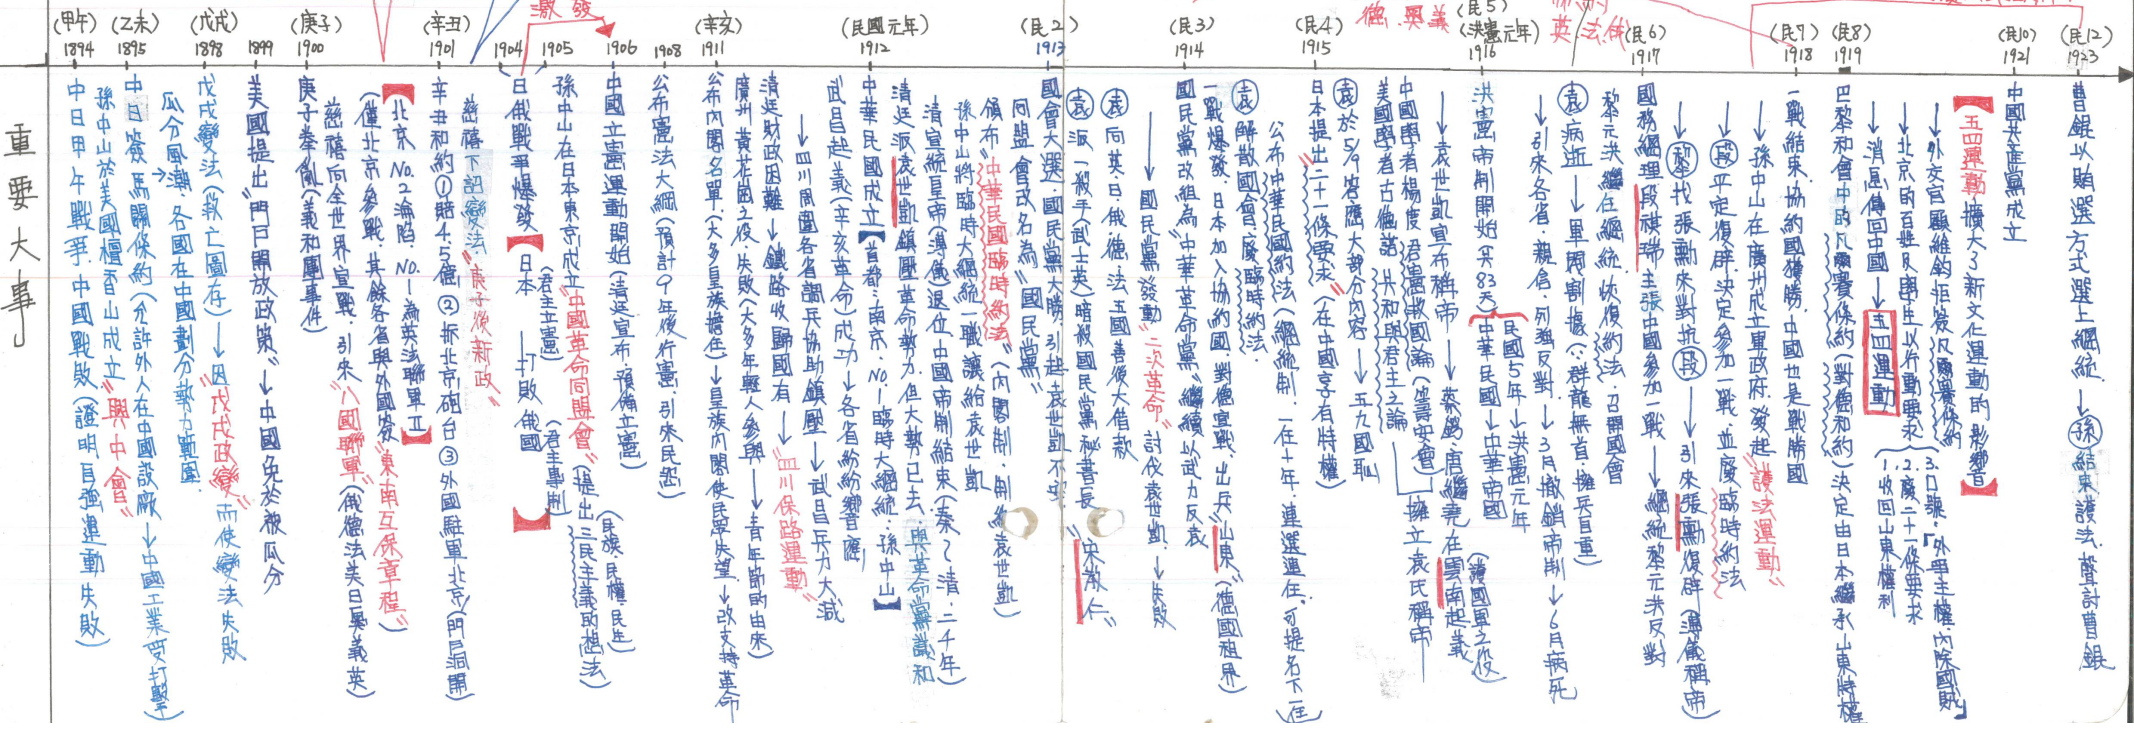 重要大事
激發
德.奧義
英.法.俄
(甲午)
1894
(乙未)
1895
(戊戌)
1898
1899
(庚子)
1900
(辛丑)
1901
1904
1905
1906
1908
(辛亥)
1911
(民國元年)
1912
(民2)
1913
(民3)
1914
(民4)
1915
(民5)
(洪憲元年)
1916
(民6)
1917
(民7)
1918
(民8)
1919
(民10)
1921
(民12)
1923
中日甲午戰爭.中國戰敗(證明自強運動失敗)
孫中山於美國檀香山成立"興中會"
中日簽馬關條約(允許外人在中國設廠→中國工業受打擊)
瓜分風潮→各國在中國劃分勢力範圍.
戊戌變法(救亡圖存)→因"戊戌政變"而使變法失敗
美國提出"門戶開放政策"→中國免於被瓜分
庚子拳亂(義和團事件)
慈禧向全世界宣戰.引來"八國聯軍"(俄德法美日奧義英)
(僅北京參戰.其餘各省與外國簽"東南互保章程")
【北京No.2淪陷.No.1為英法聯軍II】
辛丑和約①賠4.5億②拆北京砲台③外國駐軍北京(門戶洞開)
慈禧下詔變法."庚子後新政"
日俄戰爭爆發【日本(君主立憲)—打敗俄國(君主專制)】
孫中山在日本東京成立"中國革命同盟會"(提出三民主義的想法)
(民族.民權.民生)
中國立憲運動開始(清廷宣布預備立憲)
公布憲法大綱(預計9年後行憲.引來民怨)
公布內閣名單.(大多皇族擔任)→皇族內閣使民眾失望→改支持革命
廣州黃花崗之役失敗(大多年輕人參與→青年節的由來)
清廷財政困難→鐵路收歸國有→"四川保路運動"
→四川周圍各省調兵協助鎮壓→武昌兵力大減
武昌起義(辛亥革命)成功→各省紛紛響應
中華民國成立【首都:南京.No.1臨時大總統:孫中山】
清廷派袁世凱鎮壓革命勢力.但大勢已去.與革命黨議和
清宣統皇帝(溥儀)退位.中國帝制結束(秦~清.二千年)
孫中山將臨時大總統一職讓給袁世凱
頒布"中華民國臨時約法"(內閣制.制約袁世凱)
同盟會改名為"國民黨"
國會大選.國民黨大勝.引起袁世凱不安
袁派一殺手(武士英)暗殺國民黨秘書長"宋教仁"
袁向英.日.俄.德.法五國善後大借款
→國民黨發動"二次革命"討伐袁世凱→失敗
國民黨改組為"中華革命黨"繼續以武力反袁
一戰爆發.日本加入協約國.對德宣戰.出兵"山東"(德國租界)
袁解散國會.廢臨時約法.
公布中華民國約法(總統制.一任十年.連選連任.可提名下一任)
日本提出"二十一條要求"(在中國享有特權)
袁於5/9答應大部分內容→五九國恥
美國學者古德諾.共和與君主論
中國學者楊度.君憲救國論(籌安會)
擁立袁氏稱帝
→袁世凱宣布稱帝→蔡鍔.唐繼堯在雲南起義(護國軍之役)
洪憲帝制開始(共83天)
民國5年→洪憲元年
中華民國→中華帝國
→引來各省.親信.列強反對→3月撤銷帝制→6月病死
袁病逝→軍閥割據(∵群龍無首.擁兵自重)
黎元洪繼任總統恢復約法.召開國會
國務總理段祺瑞主張中國參加一戰→總統黎元洪反對
→黎找張勳來對抗段→引來張勳復辟(溥儀稱帝)
→段平定復辟.決定參加一戰.並廢臨時約法
→孫中山在廣州成立軍政府.發起"護法運動"
一戰結束.協約國獲勝.中國也是戰勝國
巴黎和會中的凡爾賽條約(對德和約)決定由日本繼承山東特權
→消息傳回中國→五四運動
→北京的百姓及學生以行動要求
1.收回山東權利
2.廢二十一條要求
3.口號:「外爭主權.內除國賊」
→外交官顧維鈞拒簽凡爾賽條約
【五四運動擴大了新文化運動的影響】
中國共產黨成立
曹錕以賄選方式選上總統.→孫結束護法.聲討曹錕